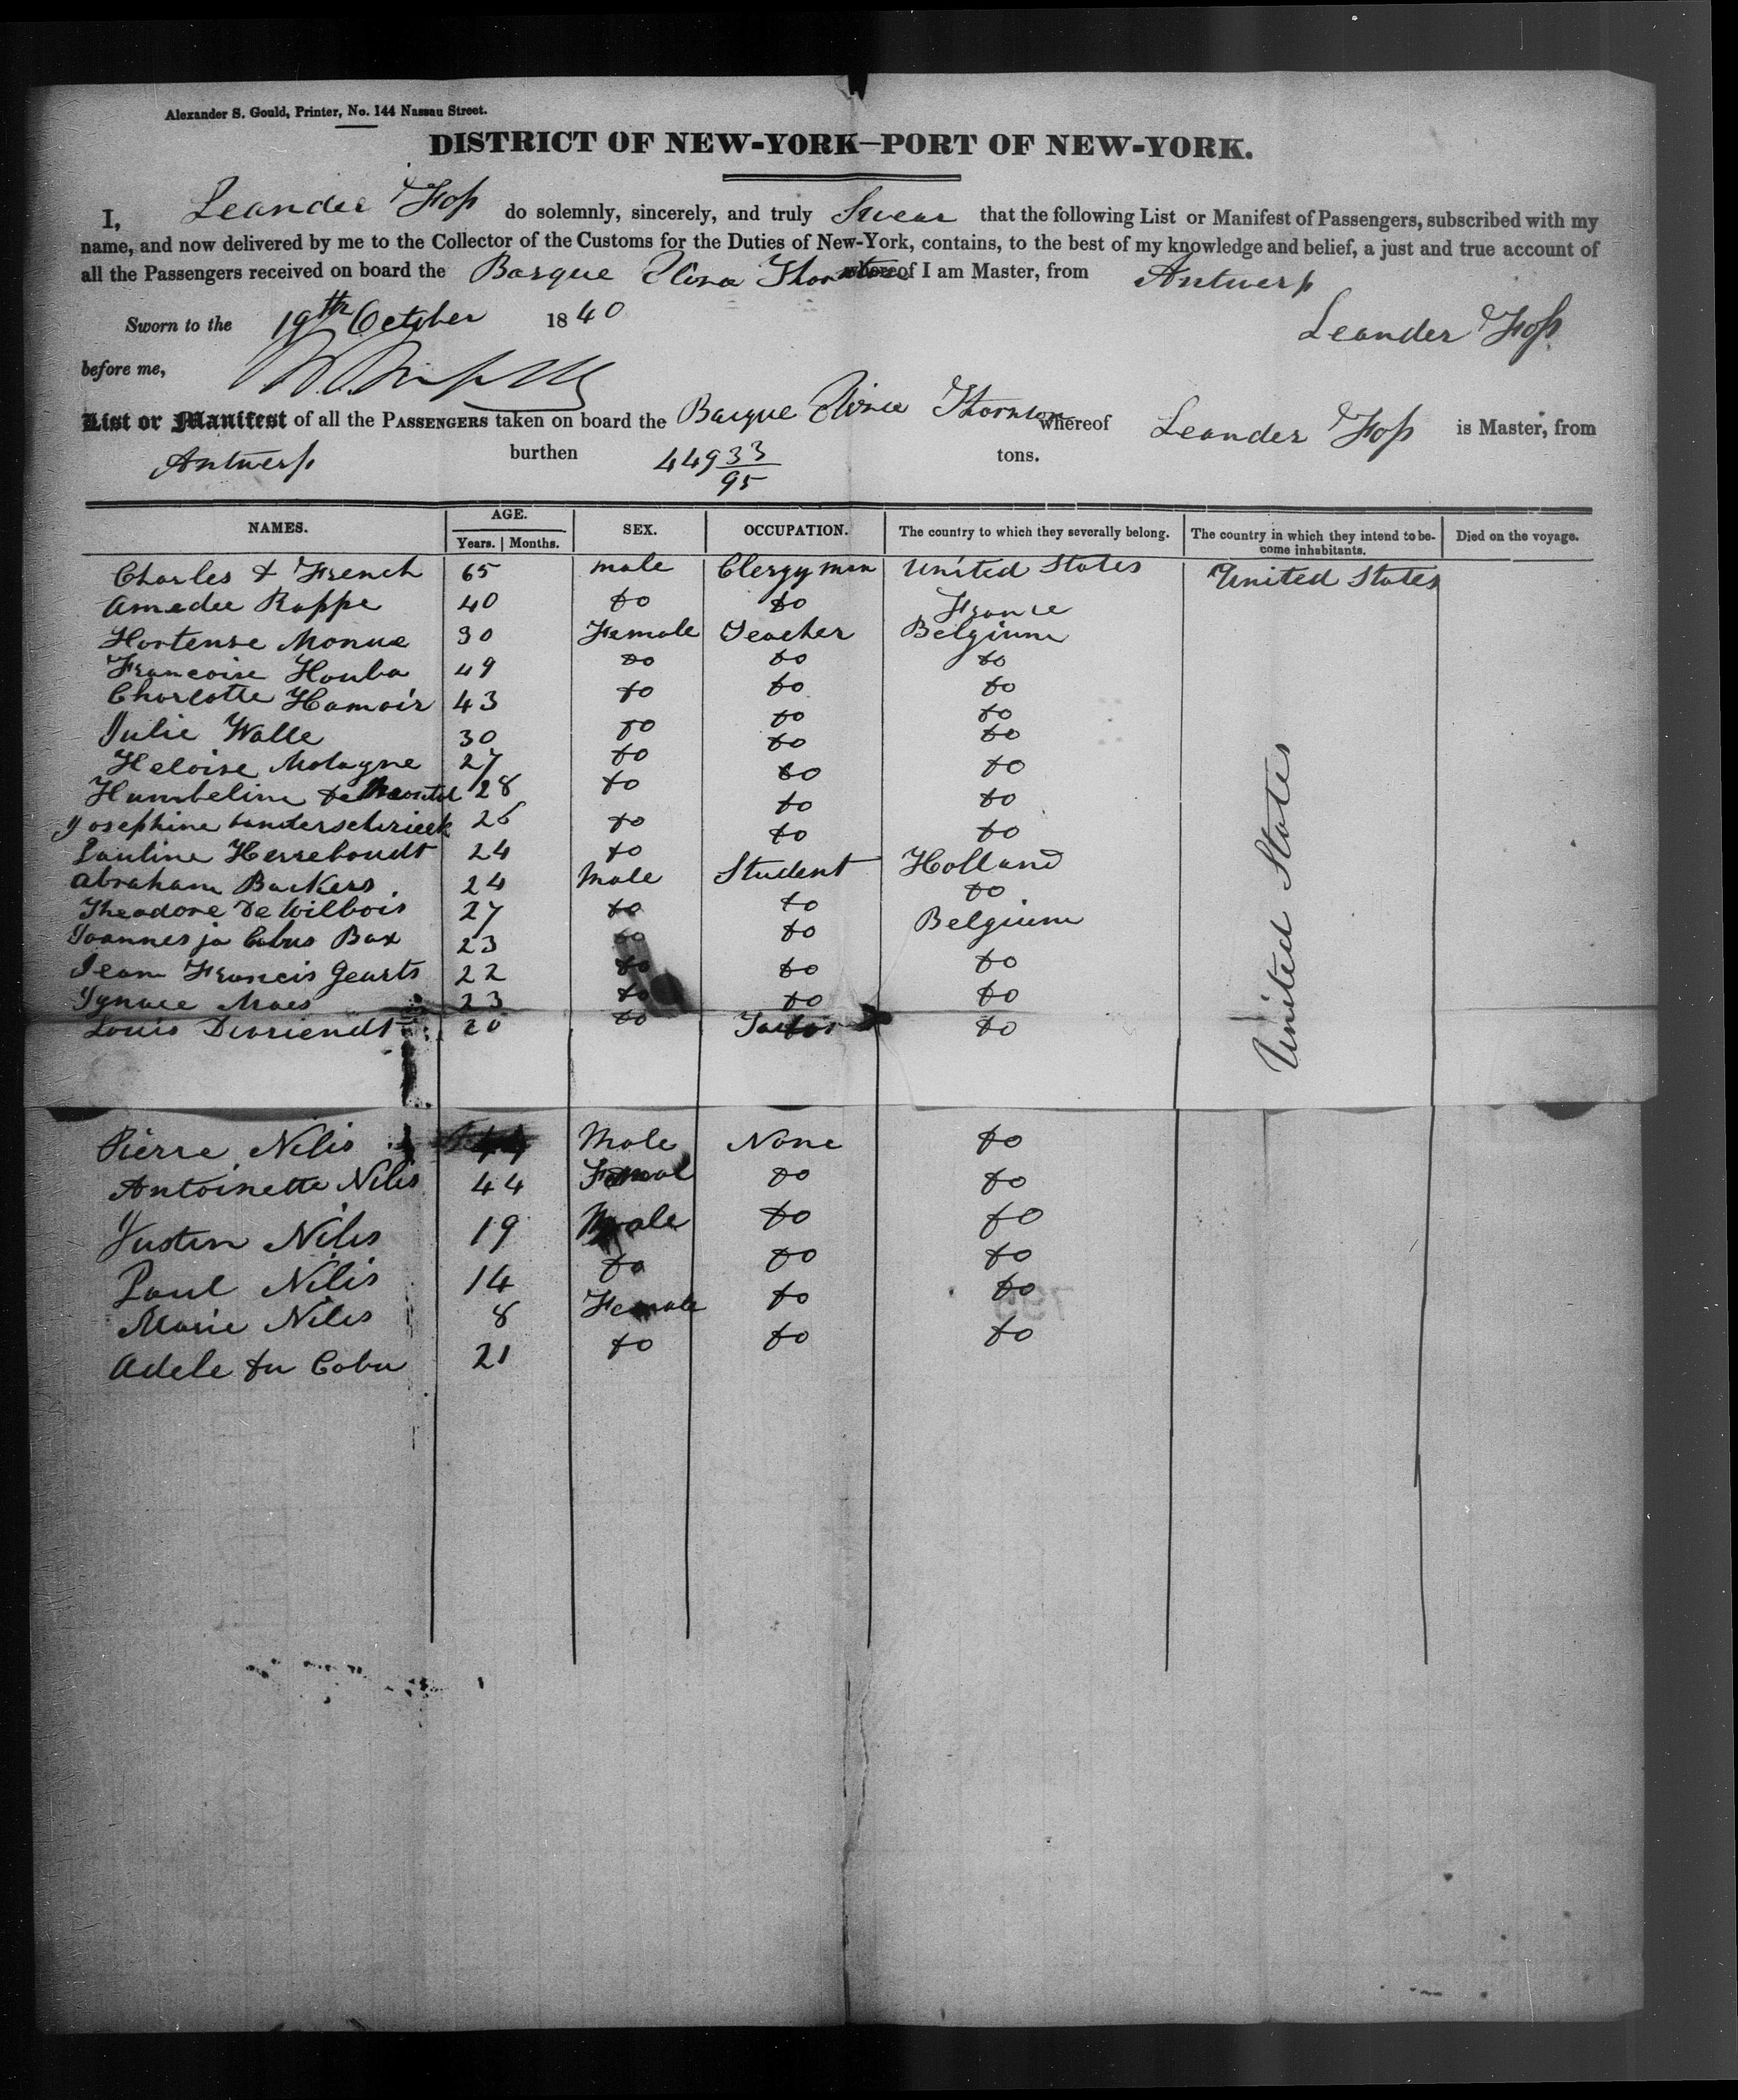 Alexander S. Gould, Printer, No. 144 Nassau Street.
DISTRICT OF NEW-YORK—PORT OF NEW-YORK.
I, Leander Foss do solemnly, sincerely, and truly Swear that the following List or Manifest of Passengers, subscribed with my
name, and now delivered by me to the Collector of the Customs for the Duties of New-York, contains, to the best of my knowledge and belief, a just and true account of
all the Passengers received on board the Barque Elisa Thornton whereof I am Master, from Antwerp
Sworn to the 19th October 1840 Leander Foss
before me,
List or Manifest of all the PASSENGERS taken on board the Barque Elisa Thornton whereof Leander Foss is Master, from
Antwerp burthen 449 33/95 tons.
NAMES. AGE. SEX. OCCUPATION. The country to which they severally belong. The country in which they intend to be- Died on the voyage.
Years. Months. come inhabitants.
Charles & French 65 male Clergyman United States United States
Amedee Rappe 40 do do France
Hortense Monue 30 Female Teacher Belgium
Francoise Houba 49 do do do
Charlotte Hamoir 43 do do do
Julie Walle 30 do do do
Heloise Molagne 27 do do do
Humbeline de 28 do do do
Josephine Vanderschrieck 26 do do do
Pauline Herreboudt 24 do do do
Abraham Backers. 24 Male Student Holland
Theodore De Wilbois 27 do do do
Joannes ja Cobus Bax 23 do do Belgium
Jean Francis Gearts 22 do do do
Ignace Maes 23 do do do
Louis Devriendt 20 do do
United States
Pierre Nelis 44 Male None do
Antoinette Nilis 44 Femal do do
Justin Nilis 19 Male do do
Paul Nilis 14 do do do
Marie Niles 8 Female do do
Adele du Cobu 21 do do do